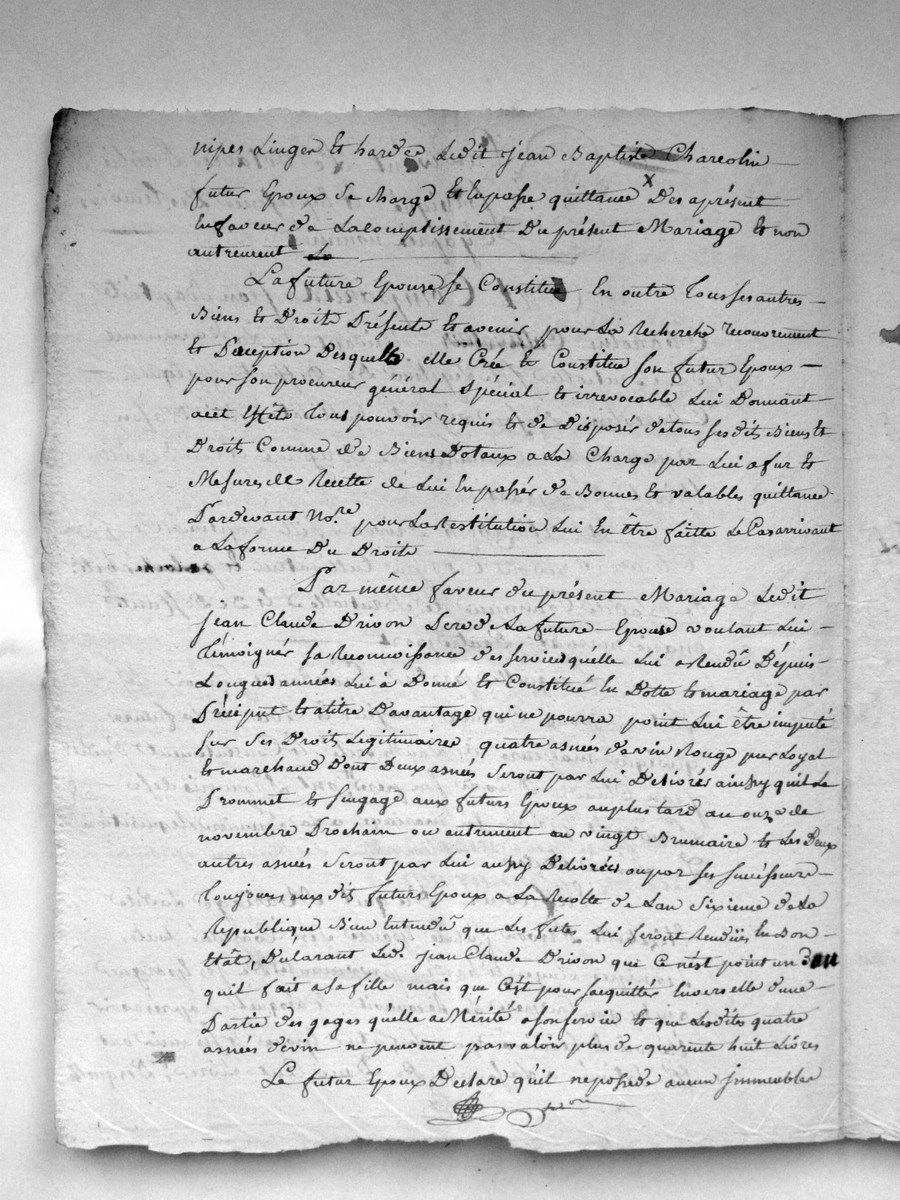 nipes Linger et hardes Ledit Jean Baptiste Charcolin
futur Epoux Se Charge et Enpasse quittance x Des aprésent
Enfaveur de Lacomplissement Duprésent Mariage et non
autrement
La future Epouse se Constitue En outre Tous ses autres
Biens et Droits Présents et avenir, pour La Recherche Recouvrement
et Perception Desquels elle Crée et Constitue son futur Epoux
pour son procureur général spécial et irrevocable Lui Donnant
acet Effet Tous pouvoir requis et de Disposér detous ses dits Biens et
Droits Comme de Biens Dotaux a La Charge par Lui a fur et
Mesure de Recette de Lui En passér de Bonnes et valables quittance
Pardevant No.re pour La Restitution Lui En être faitte Le Cas arrivant
a La forme Du Droite
Par même faveur du présent Mariage Ledit
Jean Claude Drivon Pere de La future Epouse voulant Lui
Temoignér sa Reconnoissance des services quélle Lui a Rendû Dépuis
Longues années Lui à Donné et Constitué En Dotte et mariage par
Précîput et atitre Davantage qui ne pourra point Lui être imputé
sur ses Droits Legitimaires quatre asnées de vin Rouge pur Loyal
et marchand Dont Deux asnées seront par Lui Délivrés ainsy quil Le
Prommet et sengage aux futurs Epoux auplus tard au onze de
novembre Prochain ou autrement au vingt Brumaire et Les Deux
autres asnées seront par Lui ausy Délivrées ou par ses succésseurs
Toujours aux dit futurs Epoux a La Recolte de Lan sixieme de La
Republique Bien Entendû que Les futes Lui seront Rendües En Bon
Etât, Déclarant Led. Jean Claude Drivon que Ce n'est point un don
quil fait a sa fille mais que C'est pour sacquittér Envers elle d'une
Partie des gages quélle a Mérité a son service et que Lesdites quatre
asnées de vin ne peuvent pas valoir plus de quarente huit Livres
Le futur Epoux Declare quil ne possede aucun Jmmeubles